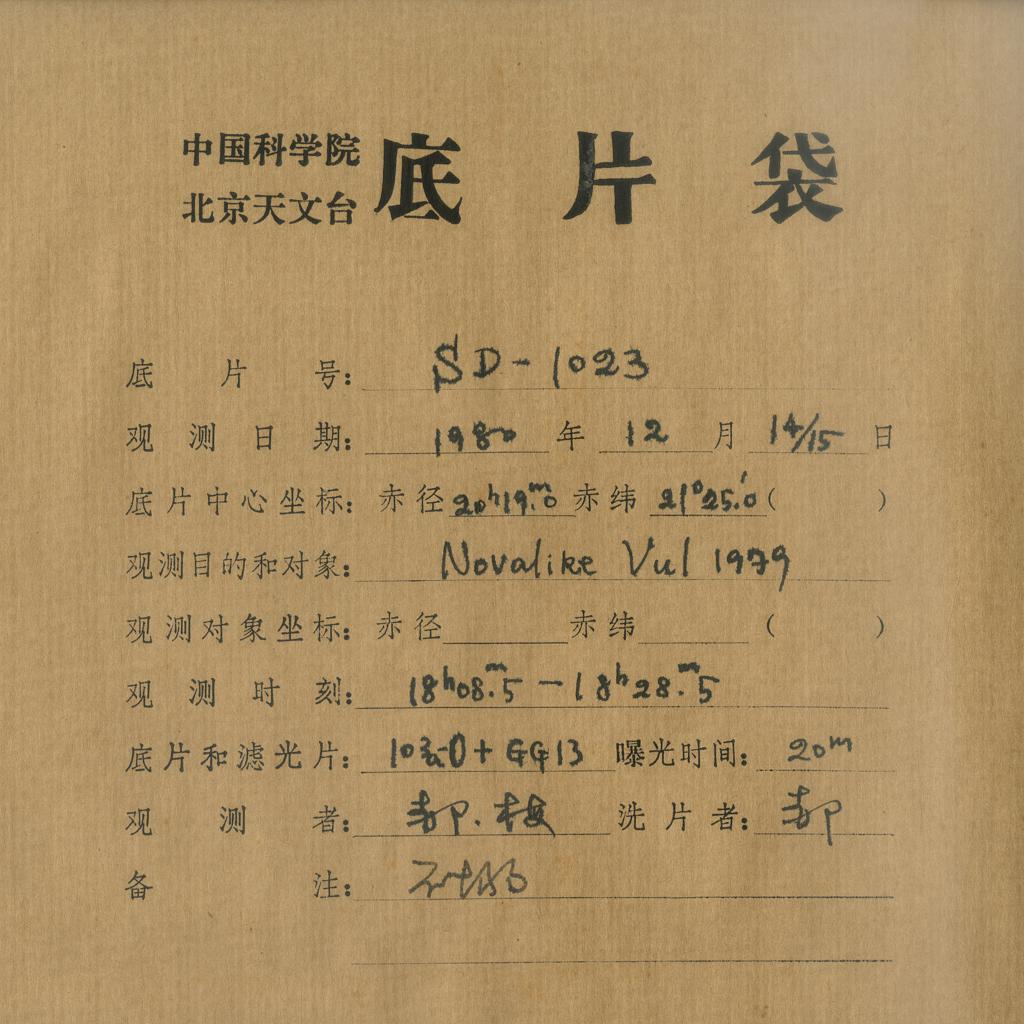 中国科学院
北京天文台
底片袋
底片号: SD-1023
观测日期: 1980年12月14/15日
底片中心坐标: 赤径20ʰ19ᵐ.0赤纬21°25′.0( )
观测目的和对象: Novalike Vul 1979
观测对象坐标: 赤径 赤纬 ( )
观测时刻: 18ʰ08ᵐ.5-18ʰ28ᵐ.5
底片和滤光片: 103a-O+GG13 曝光时间: 20ᵐ
观测者: 郝. 洗片者: 郝
备注: